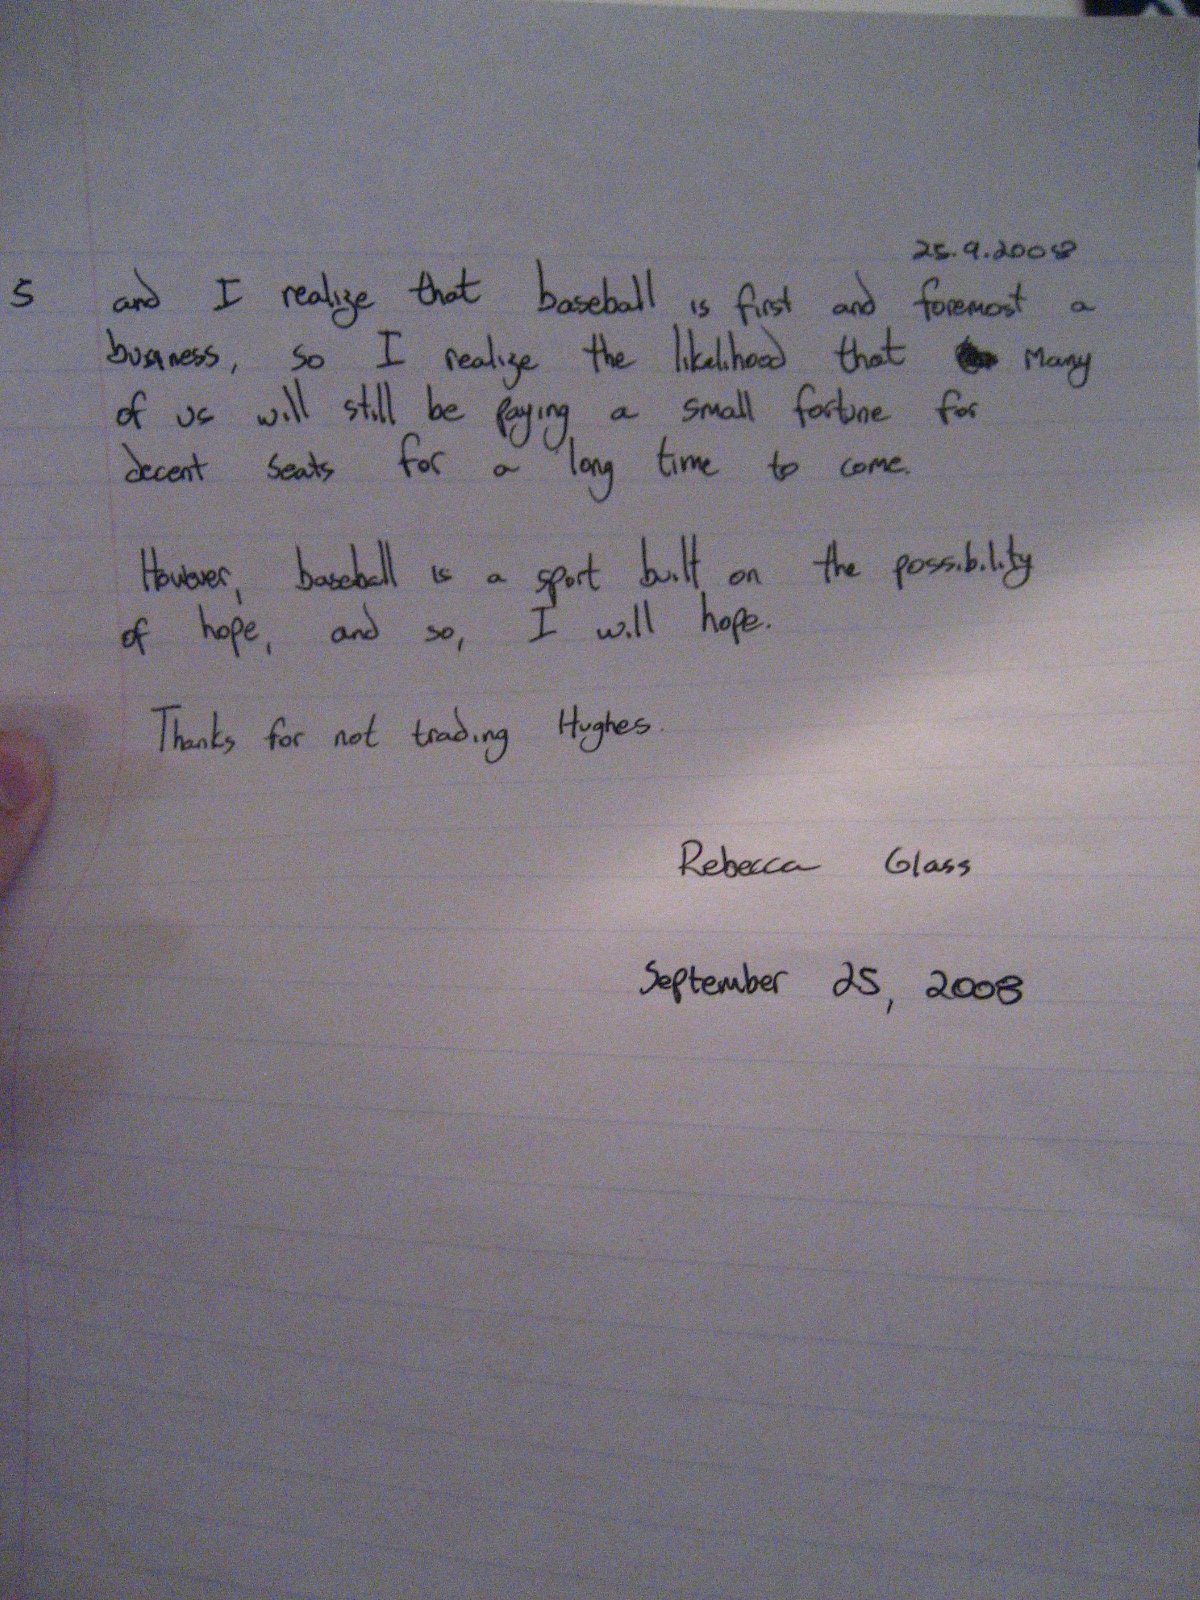 25.9.2008
5 and I realize that baseball is first and foremost a
business, so I realize the likelihood that many
of us will still be paying a small fortune for
decent seats for a long time to come.
However, baseball is a sport built on the possibility
of hope, and so, I will hope.
Thanks for not trading Hughes.
Rebecca Glass
September 25, 2008